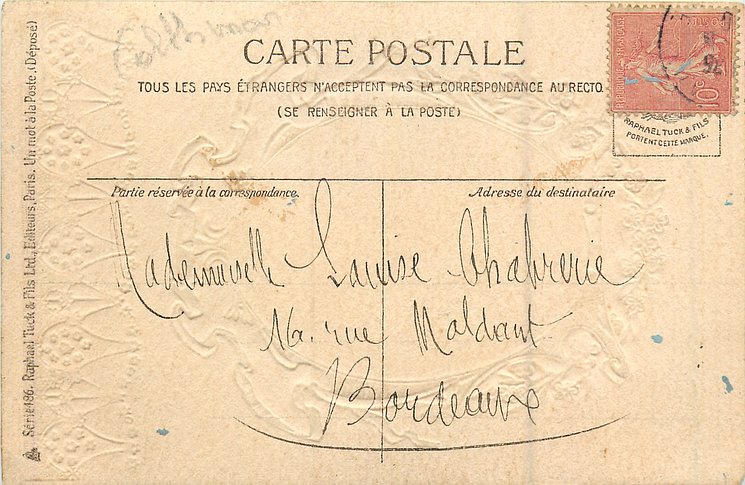 CARTE POSTALE
TOUS LES PAYS ÉTRANGERS N'ACCEPTENT PAS LA CORRESPONDANCE AU RECTO
(SE RENSEIGNER À LA POSTE)
10c
RAPHAEL TUCK & FILS
PORTENT CETTE MARQUE.
Partie réservée à la correspondance.
Adresse du destinataire
Mademoiselle Louise Chabrerie
16. rue Maldant
Bordeaux
Série 486. Raphael Tuck & Fils Ltd., Editeurs, Paris. Un mot à la Poste. (Déposé)